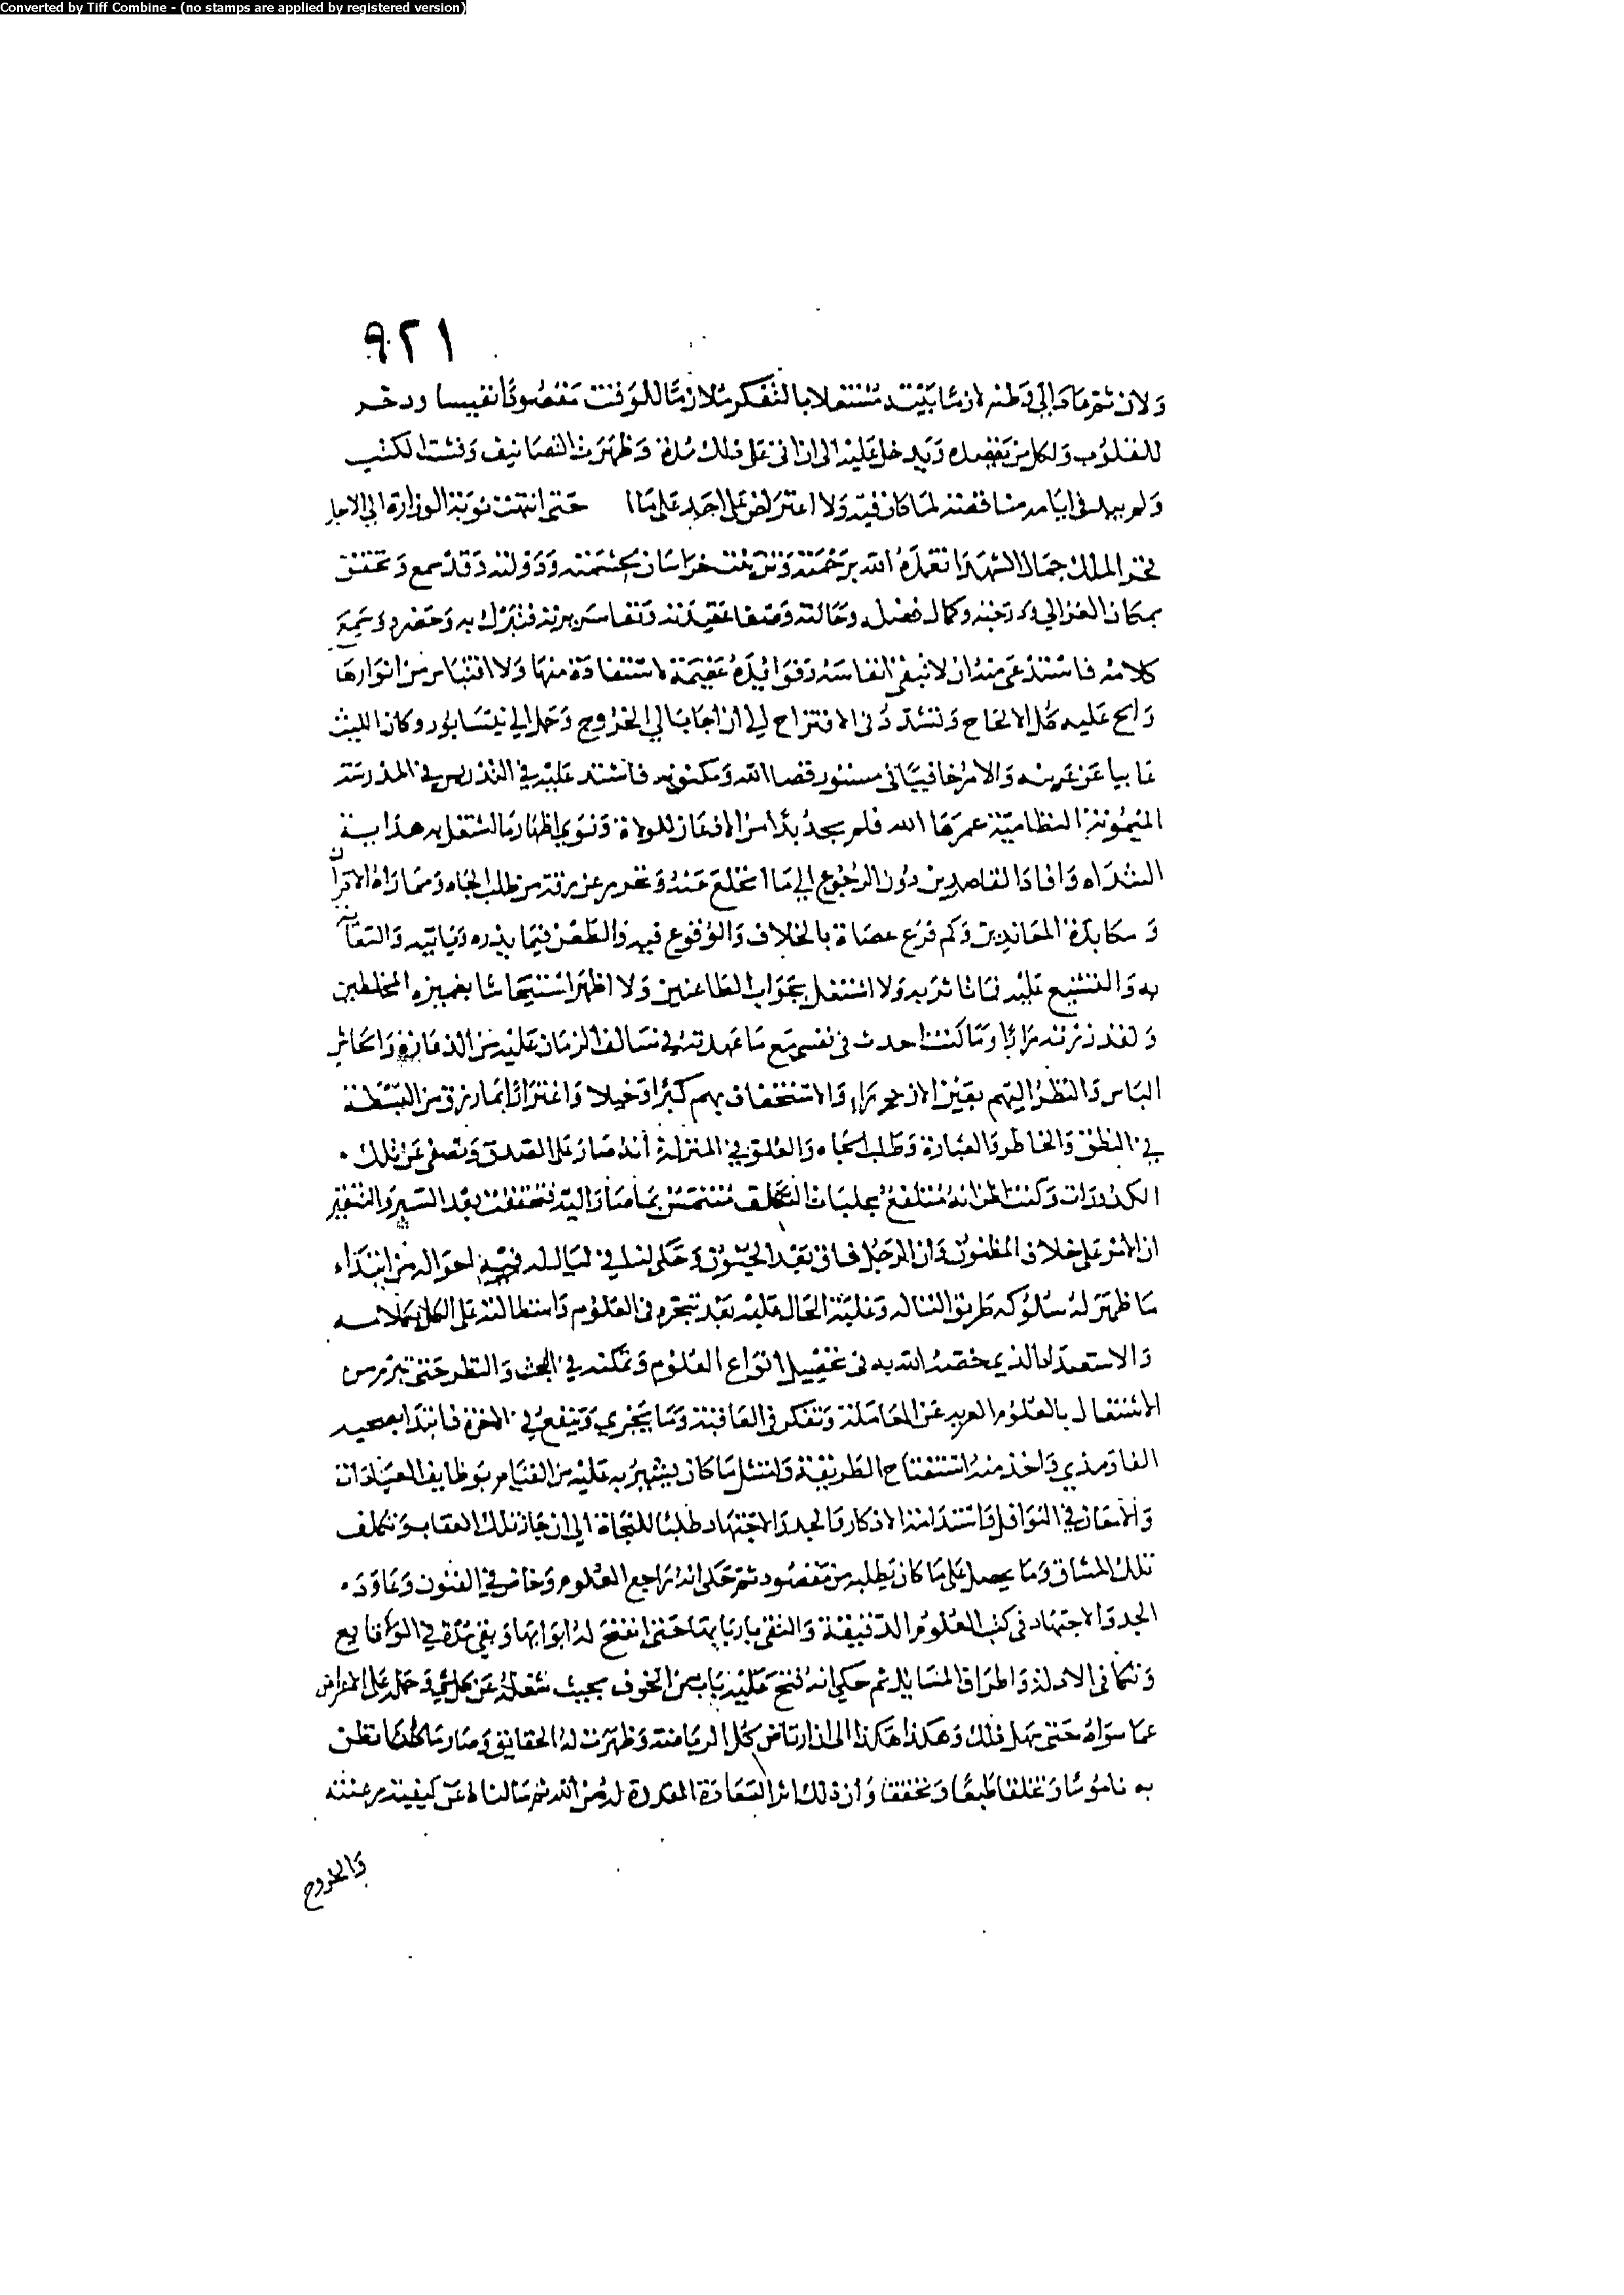 Converted by Tiff Combine - (no stamps are applied by registered version)
٩٢١
ولان ثم عاد الى وطنه لازما بيته مشتغلا بالتفكر ملازما للوقت مقصودا نفيسا وذخر
للقلوب ولكل من يقصده ويدخل عليه الى ان اتى على ذلك مدة وظهرت التصانيف وفشت الكتب
ولم يبد فى ايامه مناقضة لما كان فيه ولا اعتراض على احد على ما حتى انتهت نوبة الوزارة الى الاجل
فخر الملك جمال الشهدا تغمده الله برحمته وتزينت خراسان بحشمته ودولته وقد سمع وتحقق
بمكان الغزالي ودرجته وكمال فضله وحالته وصفا عقيدته ونقا سيرته فتبرك به وحضره وسمع
كلامه فاستدعى منه ان لا تبقى انفاسه وفوائده عقيمة لا استفادة منها ولا اقتباس من انوارها
والح عليه كل الالحاح وتشدد فى الاقتراح الى ان اجاب الى الخروج وحمل الى نيسابور وكان الليث
غايبا عن عرينه والامر خافيا فى مستور قضا الله ومكنونه فاستد عليه في التدريس في المدرسة
الميمونة النظامية عمرها الله فلم يجد بدا من الاذعان للولاة ونوى باظهار ما اشتغل به هداية
الشداه وافادة القاصدين دون الرجوع الى ما انخلع عنه وتحرر عن رقه من طلب الجاه ومماراة الاقران
ومكابدة المعاندين وكم قرع عصاه بالخلاف والوقوع فيه والطعن فيما يذره وياتيه والسعاية
به والتشنيع عليه فما تاثر به ولا اشتغل بجواب الطاعنين ولا اظهر استيحاشا بغميزة المخلطين
ولقد زرته مرارا وما كنت احدث فى نفسى مع ما عهدته فى سالف الزمان عليه من الذعارة وايحاش
الناس والنظر اليهم بعين الازدراء والاستخفاف بهم كبرا وخيلا واغترارا بما رزق من البسطة
في النطق والخاطر والعبارة وطلب الجاه والعلو في المنزلة انه صار على الضد وتصفى عن تلك
الكدورات وكنت اظن انه متلفع بجلباب التكلف متنمس بما صار اليه فتحققت بعد السبر والتنقير
ان الامر على خلاف المظنون وان الرجل افاق بعد الجنون وحكى لنا في ليال له كيفية احواله من ابتداء
ما ظهر له سلوكه طريق التاله وغلبة الحال عليه بعد تبحره فى العلوم واستطالته على الكل بكلامه
والاستعداد الذي خصه الله به فى تحصيل انواع العلوم وتمكنه في البحث والنظر حتى تبرم من
الاشتغال بالعلوم العريه عن المعاملة وتفكر فى العاقبة وما يجري وينفع في الاخرة فابتدا بصحبة
الفارمذي واخذ منه استفتاح الطريقة وامتثل ما كان يشير به عليه من القيام بوظايف العبادات
والامعان في النوافل واستدامة الاذكار والجد والاجتهاد طلبا للنجاة الى ان جاز تلك العقاب وتكلف
تلك المشاق وما يحصل على ما كان يطلبه من مقصوده ثم حكى انه راجع العلوم وخاض في الفنون وعاود
الجد والاجتهاد فى كتب العلوم الدقيقة والتقى باربابها حتى انفتح له ابوابها وبقي مدة في الوقايع
وتكافى الادلة واطراف المسايل ثم حكى انه فتح عليه باب من الخوف بحيث شغله عن كل شي وحمله على الاعراض
عما سواه حتى سهل ذلك وهكذا هكذا الى ان ارتاض كل الرياضة وظهرت له الحقايق وصار ما كنا نظن
به ناموسا وتخلقا طبعا وتحققا وان ذلك اثر السعادة المقدرة له من الله ثم سالناه عن كيفية رغبته
والخروج